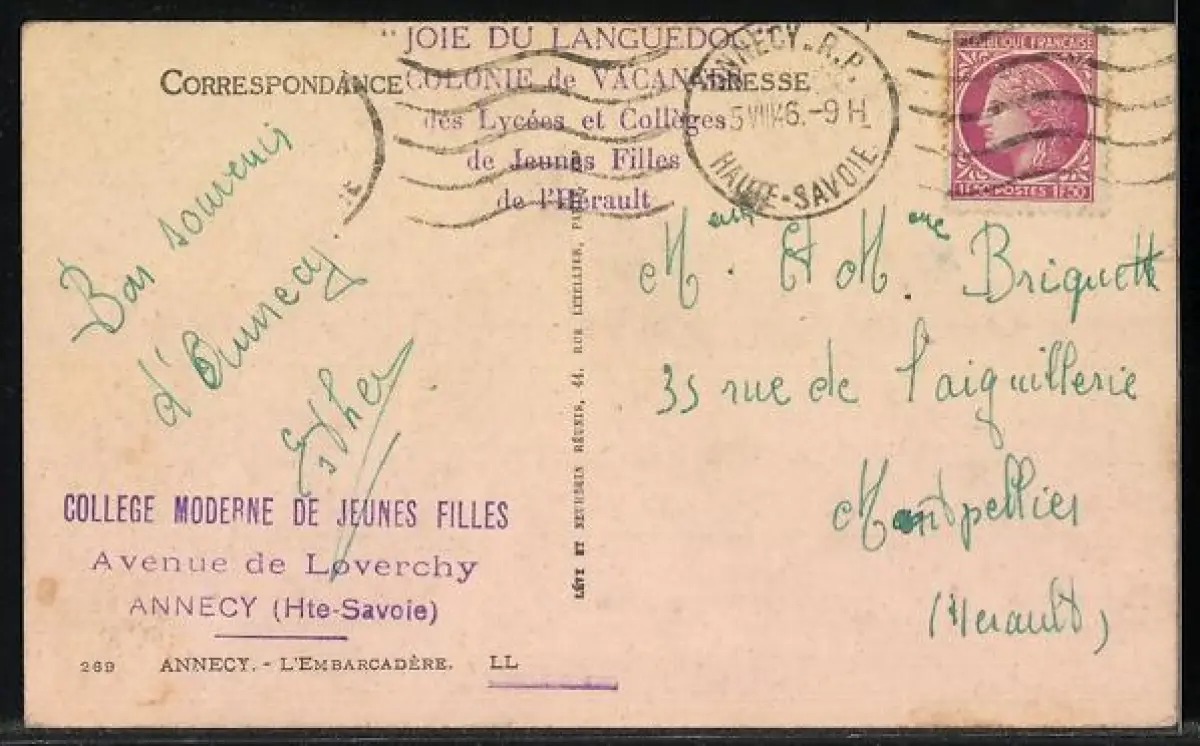 "JOIE DU LANGUEDOC
COLONIE de VACANCES
des Lycées et Collèges
de Jeunes Filles
de l'Hérault
CORRESPONDANCE
ADRESSE
ANNECY-R.P.
5 VIII 46.-9H
HAUTE-SAVOIE
RÉPUBLIQUE FRANÇAISE
POSTES 1F50
Bon souvenir
d'Annecy.
Esther
COLLEGE MODERNE DE JEUNES FILLES
Avenue de Loverchy
ANNECY (Hte-Savoie)
269 ANNECY. - L'EMBARCADÈRE. LL
LÉVY ET NEURDEIN RÉUNIS, 44, RUE LETELLIER, PARIS
Et Mme Briquet
35 rue de l'aiguillerie
Montpellier
(Herault)